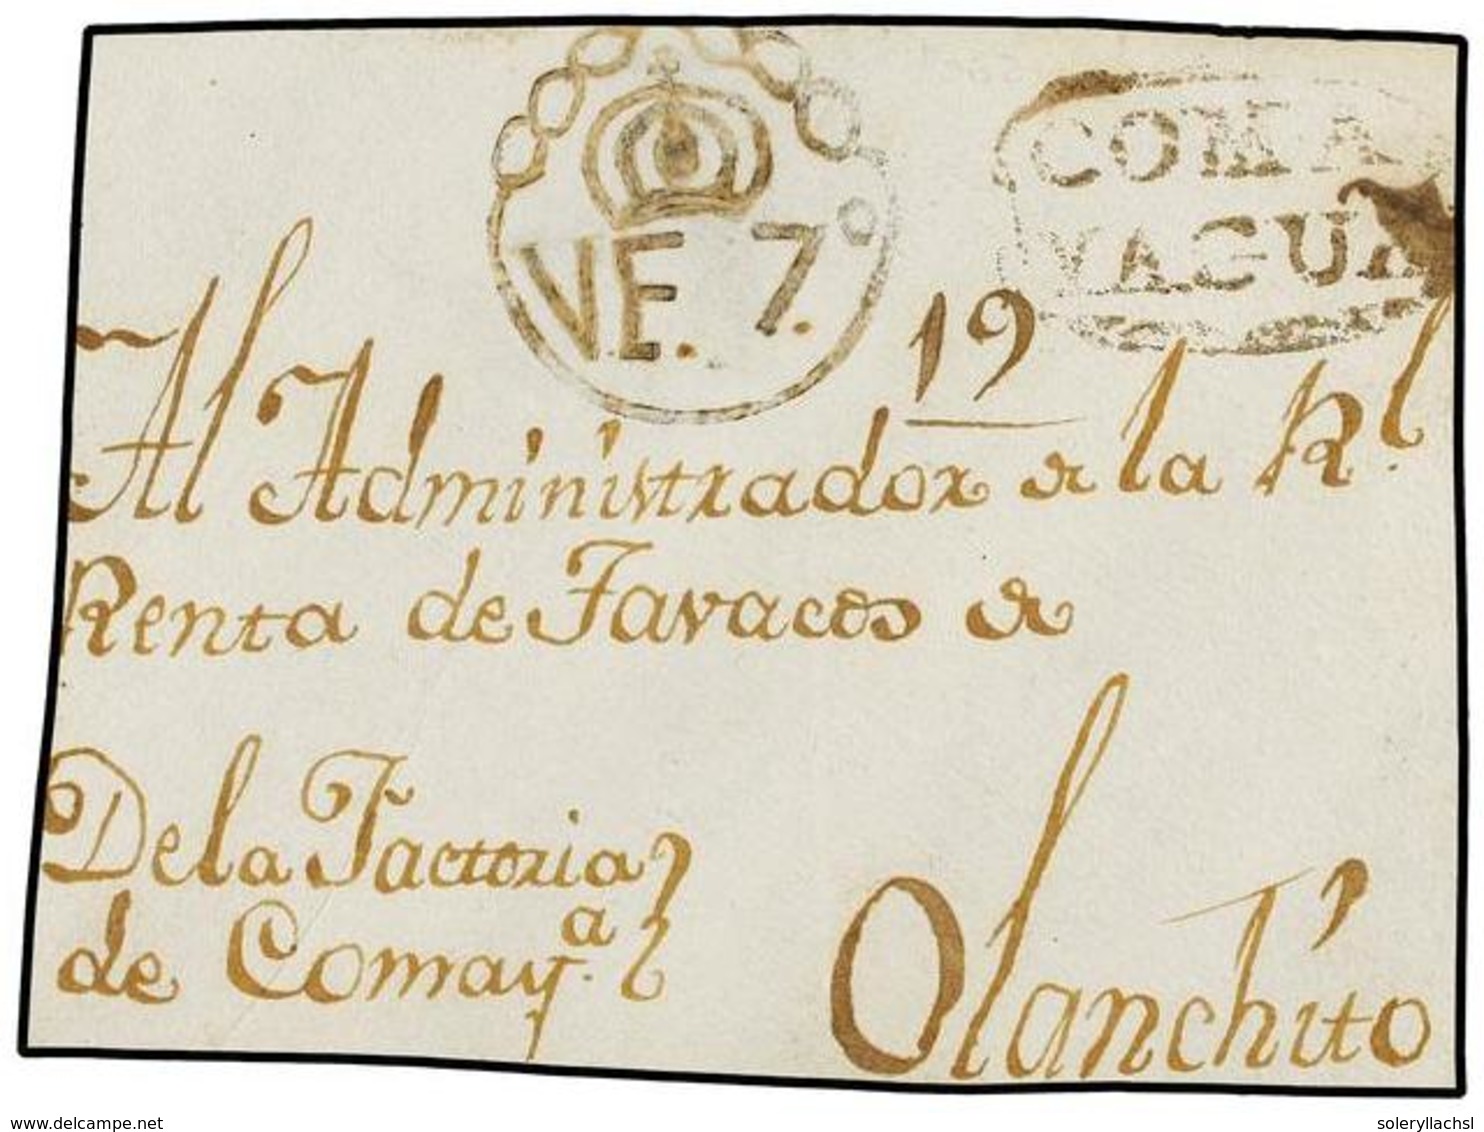 COMA
YAGUA
VE. 7.º
19
Al Administrador de la Rl.
Renta de Tavacos de
De la Factoria
de Comay.a
Olanchito
© delcampe.net
soleryllachsl